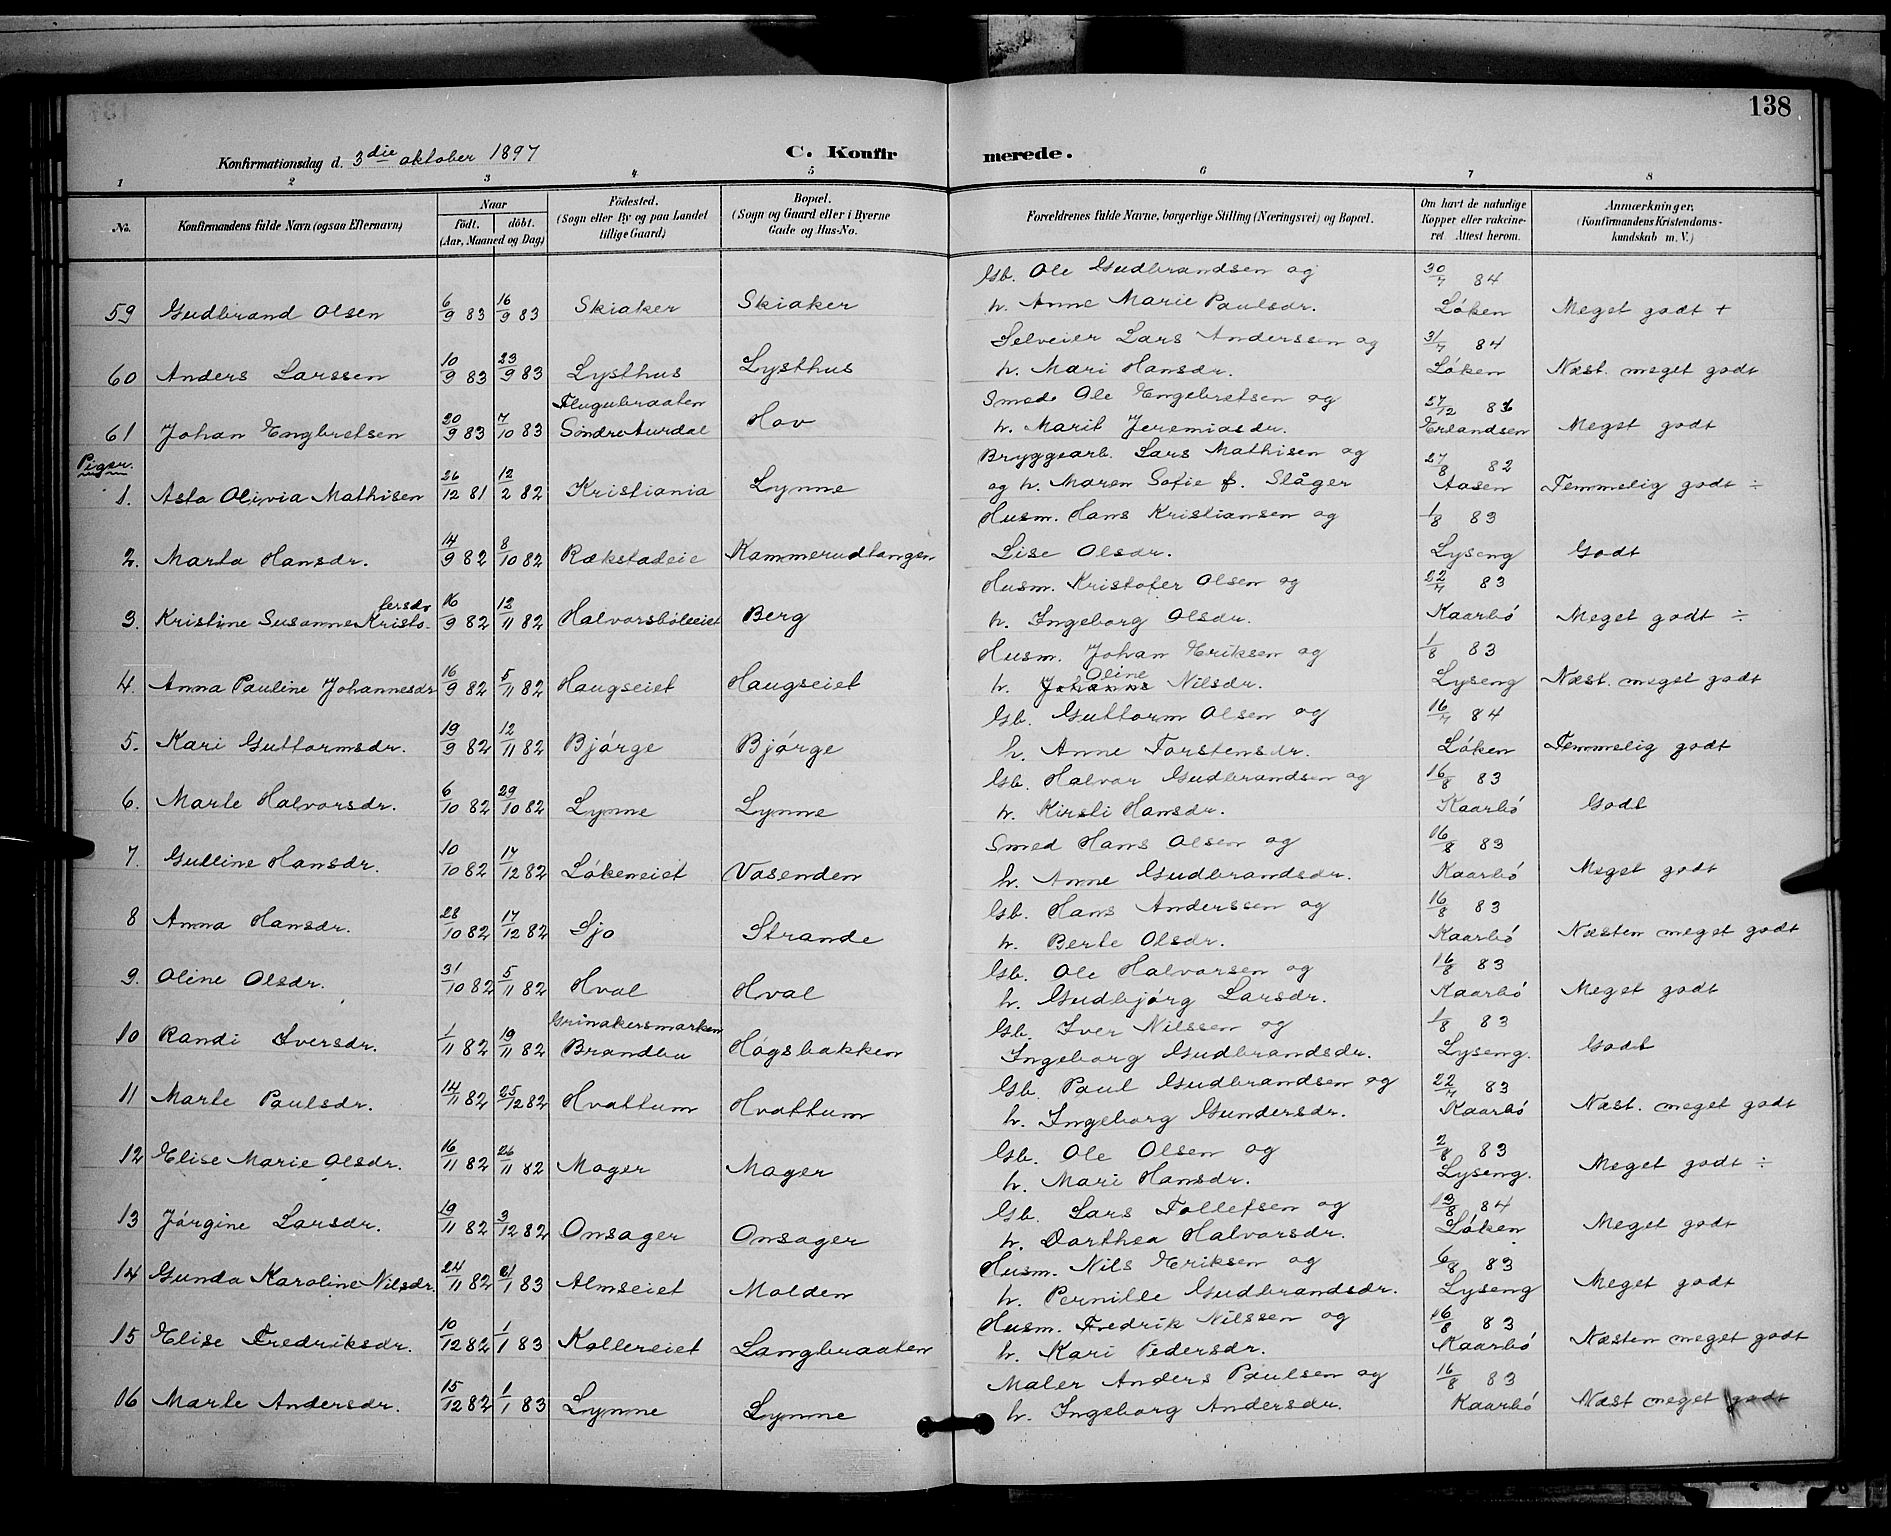 138
Konfirmationsdag d. 3die oktober 1897 C. Konfirmerede.
1 2 3 4 5 6 7 8
No. Konfirmandens fulde Navn (ogsaa Efternavn) Naar født. døbt. (Aar, Maaned og Dag) Fødested. (Sogn eller By og paa Landet tillige Gaard) Bopæl. (Sogn og Gaard eller i Byerne Gade og Hus-No. Forældrenes fulde Navne, borgerlige Stilling (Næringsvei) og Bopæl. Om havt de naturlige Kopper eller vakcineret Attest herom. Anmærkninger, (Konfirmandens Kristendomskundskab m. V.)
59 Gudbrand Olsen 6/9 83 16/9 83 Skiaker Skiaker Gb. Ole Gudbrandsen og h. Anne Marie Paulsdr. 30/7 84 Løken Meget godt +
60 Anders Larssen 10/9 83 23/9 83 Lysthus Lysthus Selveier Lars Anderssen og h. Mari Hansdr. 31/7 84 Løken Næst. meget godt
61 Johan Engbretsen 20/9 83 7/10 83 Flugubraaten Søndre Aurdal Hov Smed Ole Engebretsen og h. Marit Jeremiasdr. 27/12 Erlandsen Meget godt
Piger.
1. Asta Olivia Mathisen 26/12 81 12/2 82 Kristiania Lynne Bryggearb. Lars Mathisen og og h. Maren Sofie f. Slåger 27/8 82 Aasen Temmelig godt ÷
2. Marta Hansdr. 14/9 82 8/10 82 Rækstadeie Kammerudtangen Husm. Hans Kristiansen og Lise Olsdr. 1/8 83 Lyseng Godt
3. Kristine Susanne Kristofersdr 16/9 82 12/11 82 Halvorsbøleeiet Berg Husm. Kristofer Olsen og h. Ingeborg Olsdr. 22/7 83 Kaarbø Meget godt ÷
4. Anna Pauline Johannesdr 16/9 82 5/11 82 Haugseiet Haugseiet Husm. Johan Eriksen og h. Johanne Oline Nilsdr. 1/8 83 Lyseng Næst. meget godt
5. Kari Guttormsdr. 19/9 82 12/11 82 Bjørge Bjørge Gb. Guttorm Olsen og h. Anne Torstensdr. 16/7 84 Løken Temmelig godt
6. Marte Halvorsdr. 6/10 82 29/10 82 Lynne Lynne Gb. Halvor Gudbrandsen og h. Kirsti Hansdr. 16/8 83 Kaarbø Godt
7. Gulline Hansdr. 10/10 82 17/12 82 Løkeneiet Vasenden Smed Hans Olsen og h. Anne Gudbrandsdr. 16/8 83 Kaarbø Meget godt
8 Anna Hansdr. 28/10 82 17/12 82 Sjo Strande Gb. Hans Anderssen og h. Berte Olsdr. 16/8 83 Kaarbø Næsten meget godt
9. Oline Olsdr. 31/10 82 5/11 82 Hval Hval Gb. Ole Halvorsen og h. Gudbjørg Larsdr. 16/8 83 Kaarbø Meget godt
10 Randi Iversdr. 1/11 82 19/11 82 Grinakersmarken Brandbu Høgsbakken Gb. Iver Nilssen og Ingeborg Gudbrandsdr. 1/8 83 Lyseng. Godt
11 Marte Paulsdr. 14/11 82 25/12 82 Hvattum Hvattum Gb. Paul Gudbrandsen og h. Ingeborg Gundersdr. 22/7 83 Kaarbø Næst. meget godt
12 Elise Marie Olsdr. 16/11 82 26/11 82 Mager Mager Gb. Ole Olsen og h. Mari Hansdr. 2/8 83 Lyseng. Meget godt ÷
13 Jørgine Larsdr. 19/11 82 3/12 82 Onsager Onsager Gb. Lars Tollefsen og h. Dorthea Halvorsdr. 13/8 84 Løken. Meget godt
14 Gunda Karoline Nilsdr. 24/11 82 21/1 83 Almseiet Molden Husm. Nils Eriksen og h. Pernille Gudbrandsdr. 6/8 83 Lyseng Meget godt
15 Elise Fredriksdr. 10/12 82 1/1 83 Kollereiet Langbraaten Husm. Fredrik Nilssen og h. Kari Pedersdr. 16/8 83 Kaarbø Næsten meget godt
16 Marte Andersdr. 15/12 82 1/1 83 Lynne Lynne Maler Anders Paulsen og h. Ingeborg Andersdr. 16/8 83 Kaarbø Næst meget godt